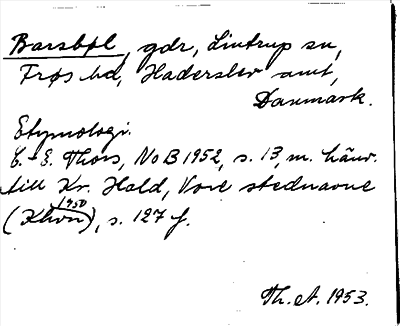 Barsbøl, gdr, Lintrup sn,
Frøs hd, Haderslev amt,
Danmark.
Etymologi.
C.-E. Thors, NoB 1952, s. 13, m. hänv.
till Kr. Hald, Vore stednavne
(Khvn 1950), s. 127 f.
Th. A. 1953.